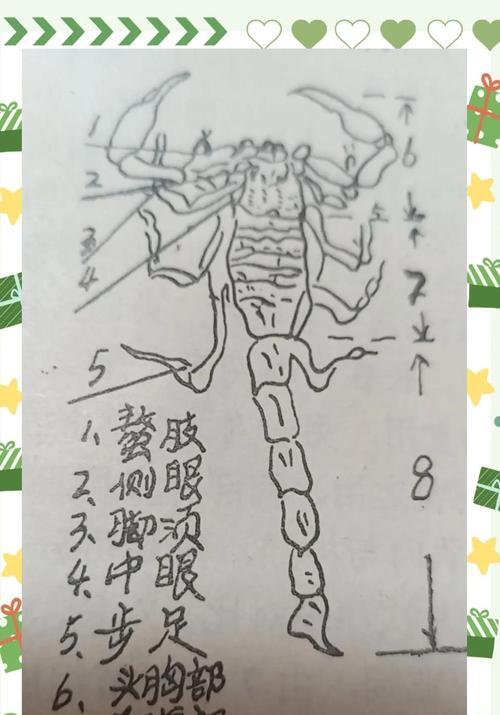 1
2
3
4
5
6
7
8
1、螯肢
2、侧眼
3、脚须
4、中眼
5、步足
6、头胸部